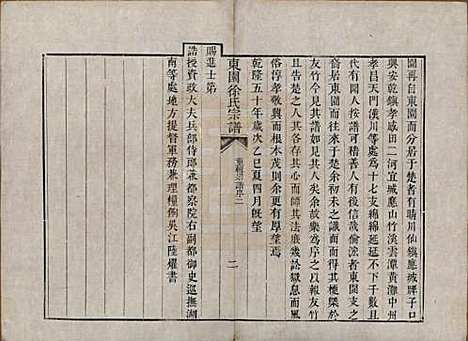 園再自東園而分居于楚者有晴川仙鎮應城胖子口
興安乾鎮孝感田二河宜城應山竹溪雲潭黃灘中州
孝昌天門漢川等處為十七支綿綿延延不下千數且
代有聞人按譜可稽善人有後蓋哉倫流者東園支之
昔居東園而往來于楚余初未之識而而得其梗槩於
友竹今見其譜如見其人矣余故樂為序之以報友竹
且告楚之人其各存其心而師其法庶幾訟獄息而風
俗淳孝敬興而根本茂則余更有厚望焉
乾隆五十年歲次乙巳夏四月既望
賜進士第
誥授資政大夫兵部侍郎兼都察院右副都御史巡撫湖
南等處地方提督軍務兼理糧餉吳江陸燿書
東園徐氏宗譜
二